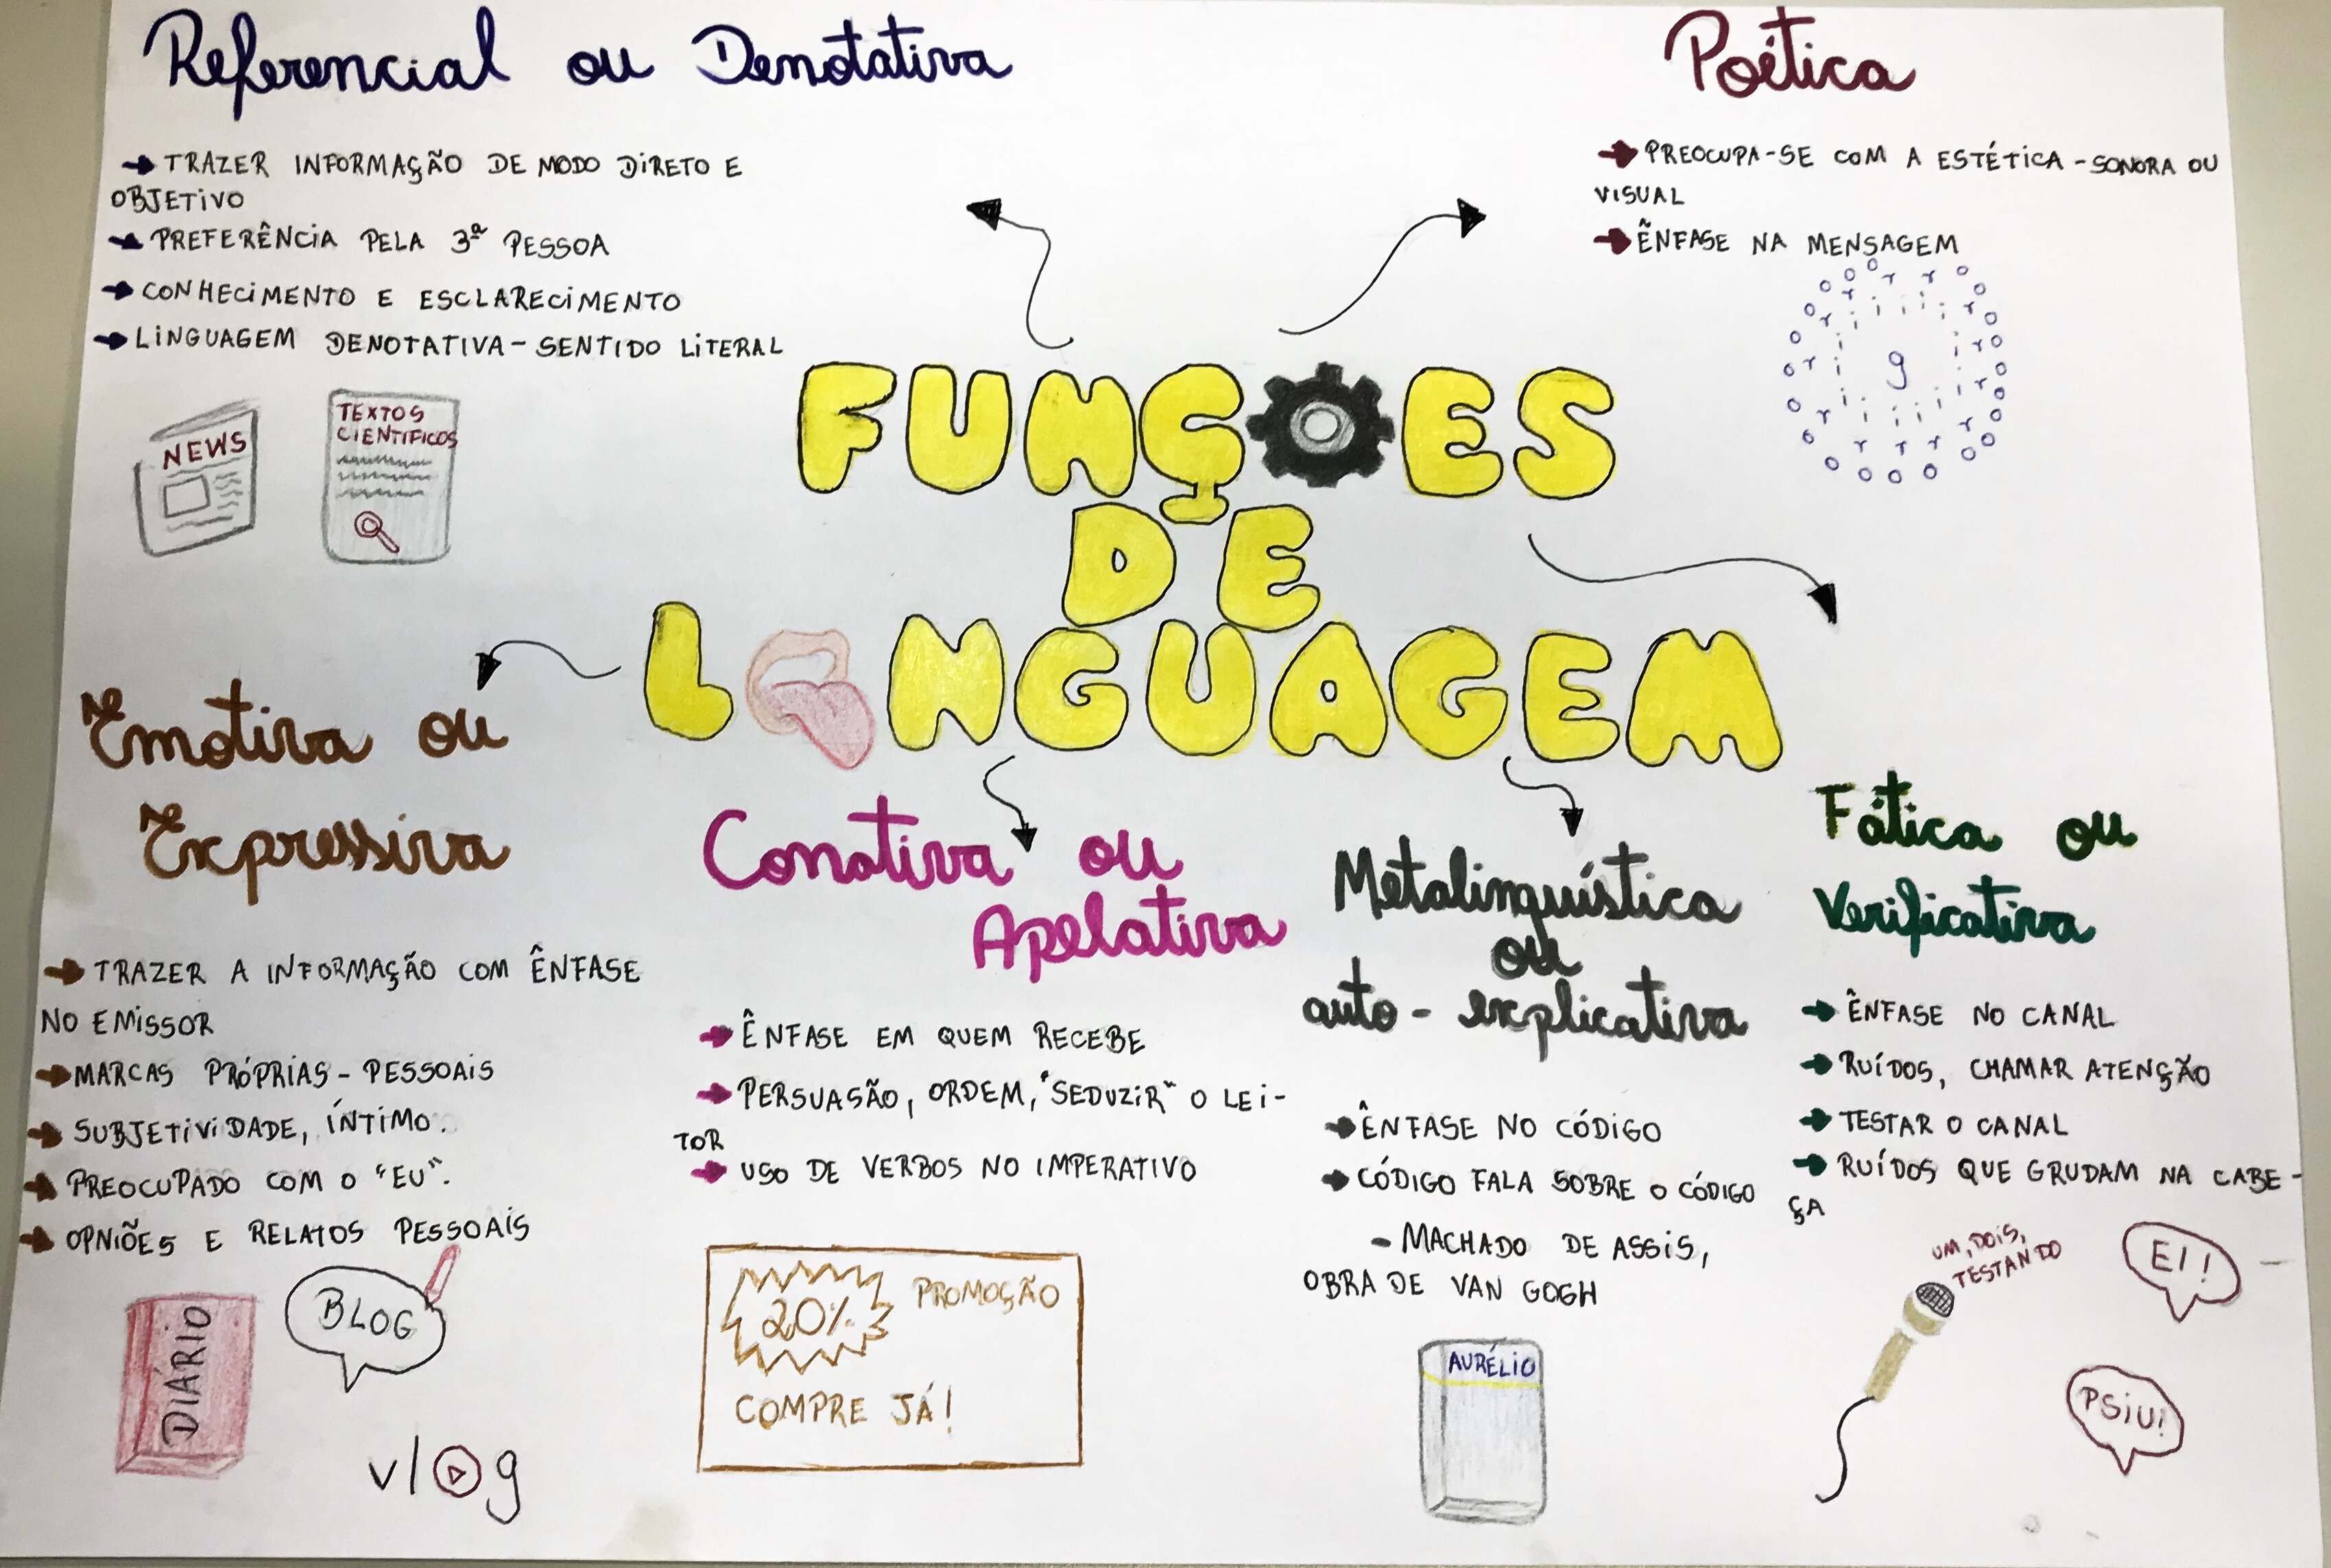 Referencial ou Denotativa
TRAZER INFORMAÇÃO DE MODO DIRETO E
OBJETIVO
PREFERÊNCIA PELA 3ª PESSOA
CONHECIMENTO E ESCLARECIMENTO
LINGUAGEM DENOTATIVA - SENTIDO LITERAL
NEWS
TEXTOS
CIENTIFICOS
Poética
PREOCUPA-SE COM A ESTÉTICA - SONORA OU
VISUAL
ÊNFASE NA MENSAGEM
FUNÇOES
DE
LINGUAGEM
Emotiva ou
Expressiva
TRAZER A INFORMAÇÃO COM ÊNFASE
NO EMISSOR
MARCAS PRÓPRIAS - PESSOAIS
SUBJETIVIDADE, ÍNTIMO.
PREOCUPADO COM O "EU".
OPNIÕES E RELATOS PESSOAIS
DIÁRIO
BLOG
vlog
Conotiva ou
Apelativa
ÊNFASE EM QUEM RECEBE
PERSUASÃO, ORDEM, "SEDUZIR" O LEI-
TOR
USO DE VERBOS NO IMPERATIVO
20% PROMOÇÃO
COMPRE JÁ!
Metalinguística
ou
auto-explicativa
ÊNFASE NO CÓDIGO
CÓDIGO FALA SOBRE O CÓDIGO
- MACHADO DE ASSIS,
OBRA DE VAN GOGH
AURÉLIO
Fática ou
Verificativa
ÊNFASE NO CANAL
RUÍDOS, CHAMAR ATENÇÃO
TESTAR O CANAL
RUÍDOS QUE GRUDAM NA CABE-
ÇA
UM, DOIS,
TESTANDO
EI!
PSIU!